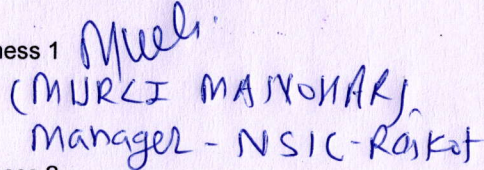 ness 1
(MURLI MANOHAR)
Manager - NSIC - Rajkot